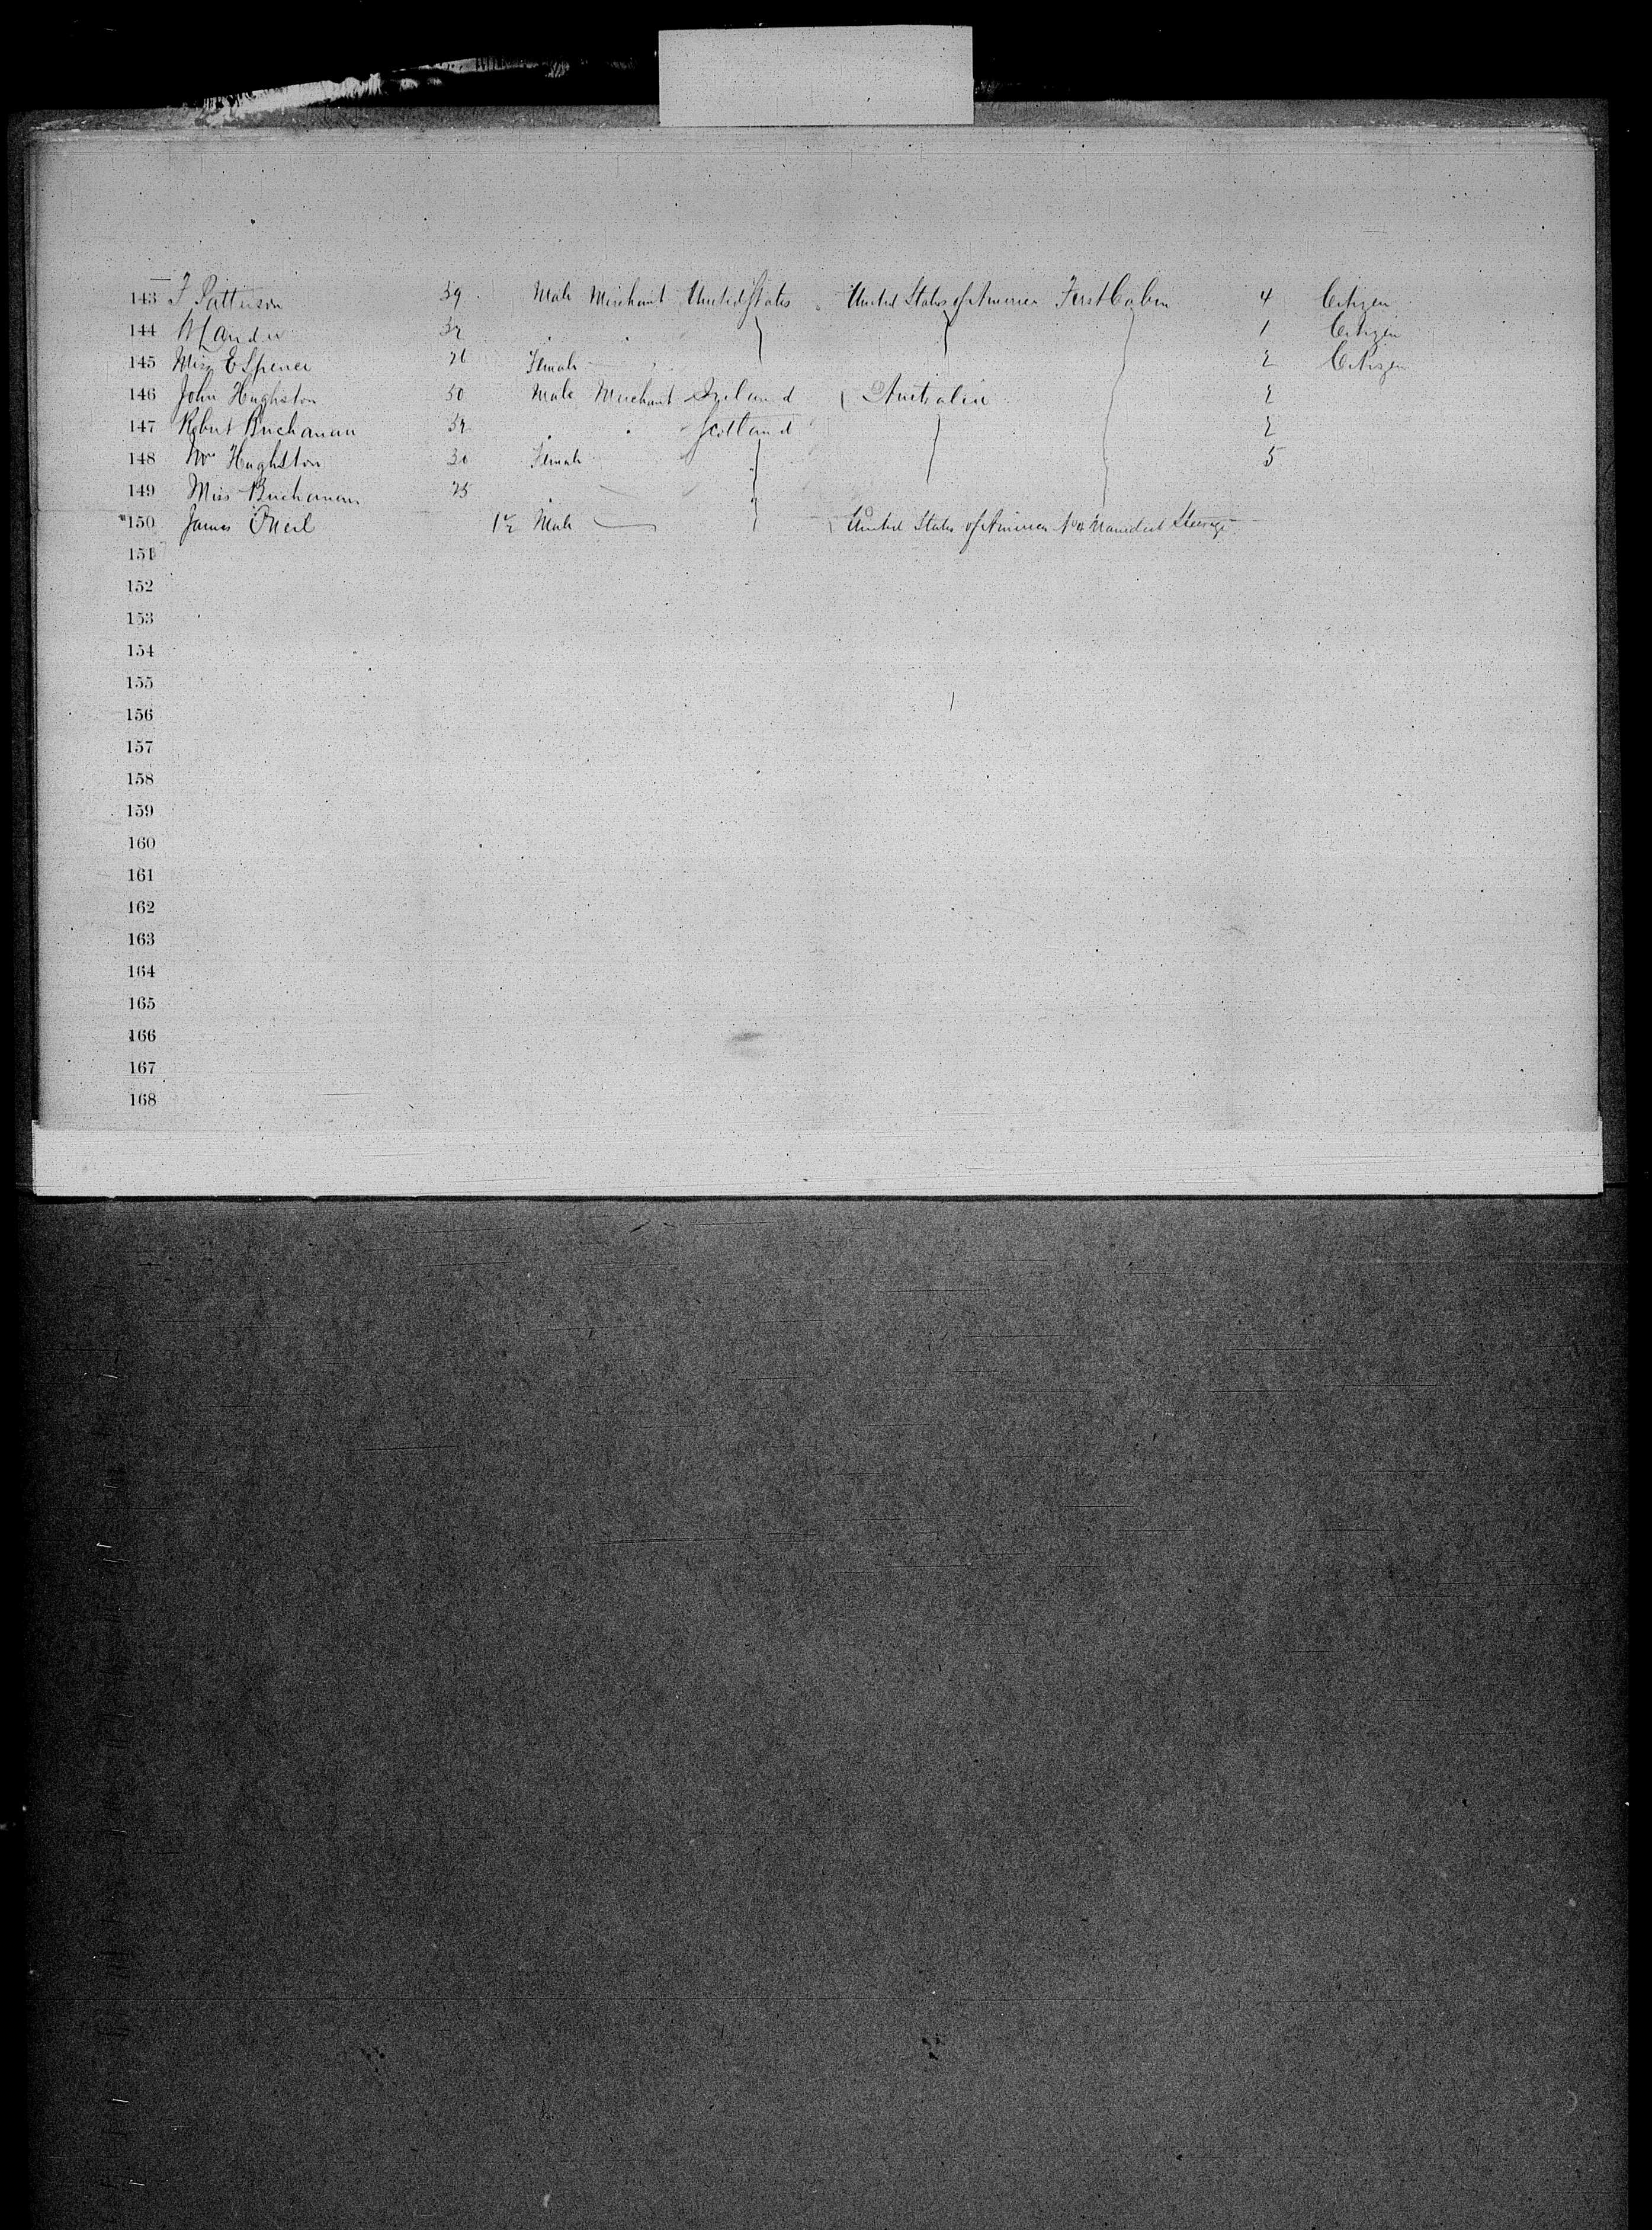 143 F Patterson 39 Male Merchant United States United States of America First Cabin 4 Citizen
144 32 " " 1 Citizen
145 Miss E Spencer 26 Female 2 Citizen
146 John Hughston 50 Male Merchant Ireland Australia 2
147 Robert Buchanan 52 " " Scotland 2
148 Mrs Hughston 30 Female 5
149 Miss Buchanan 25 "
150 James O'Neil 12 Male United States of America Steerage
151
152
153
154
155
156
157
158
159
160
161
162
163
164
165
166
167
168